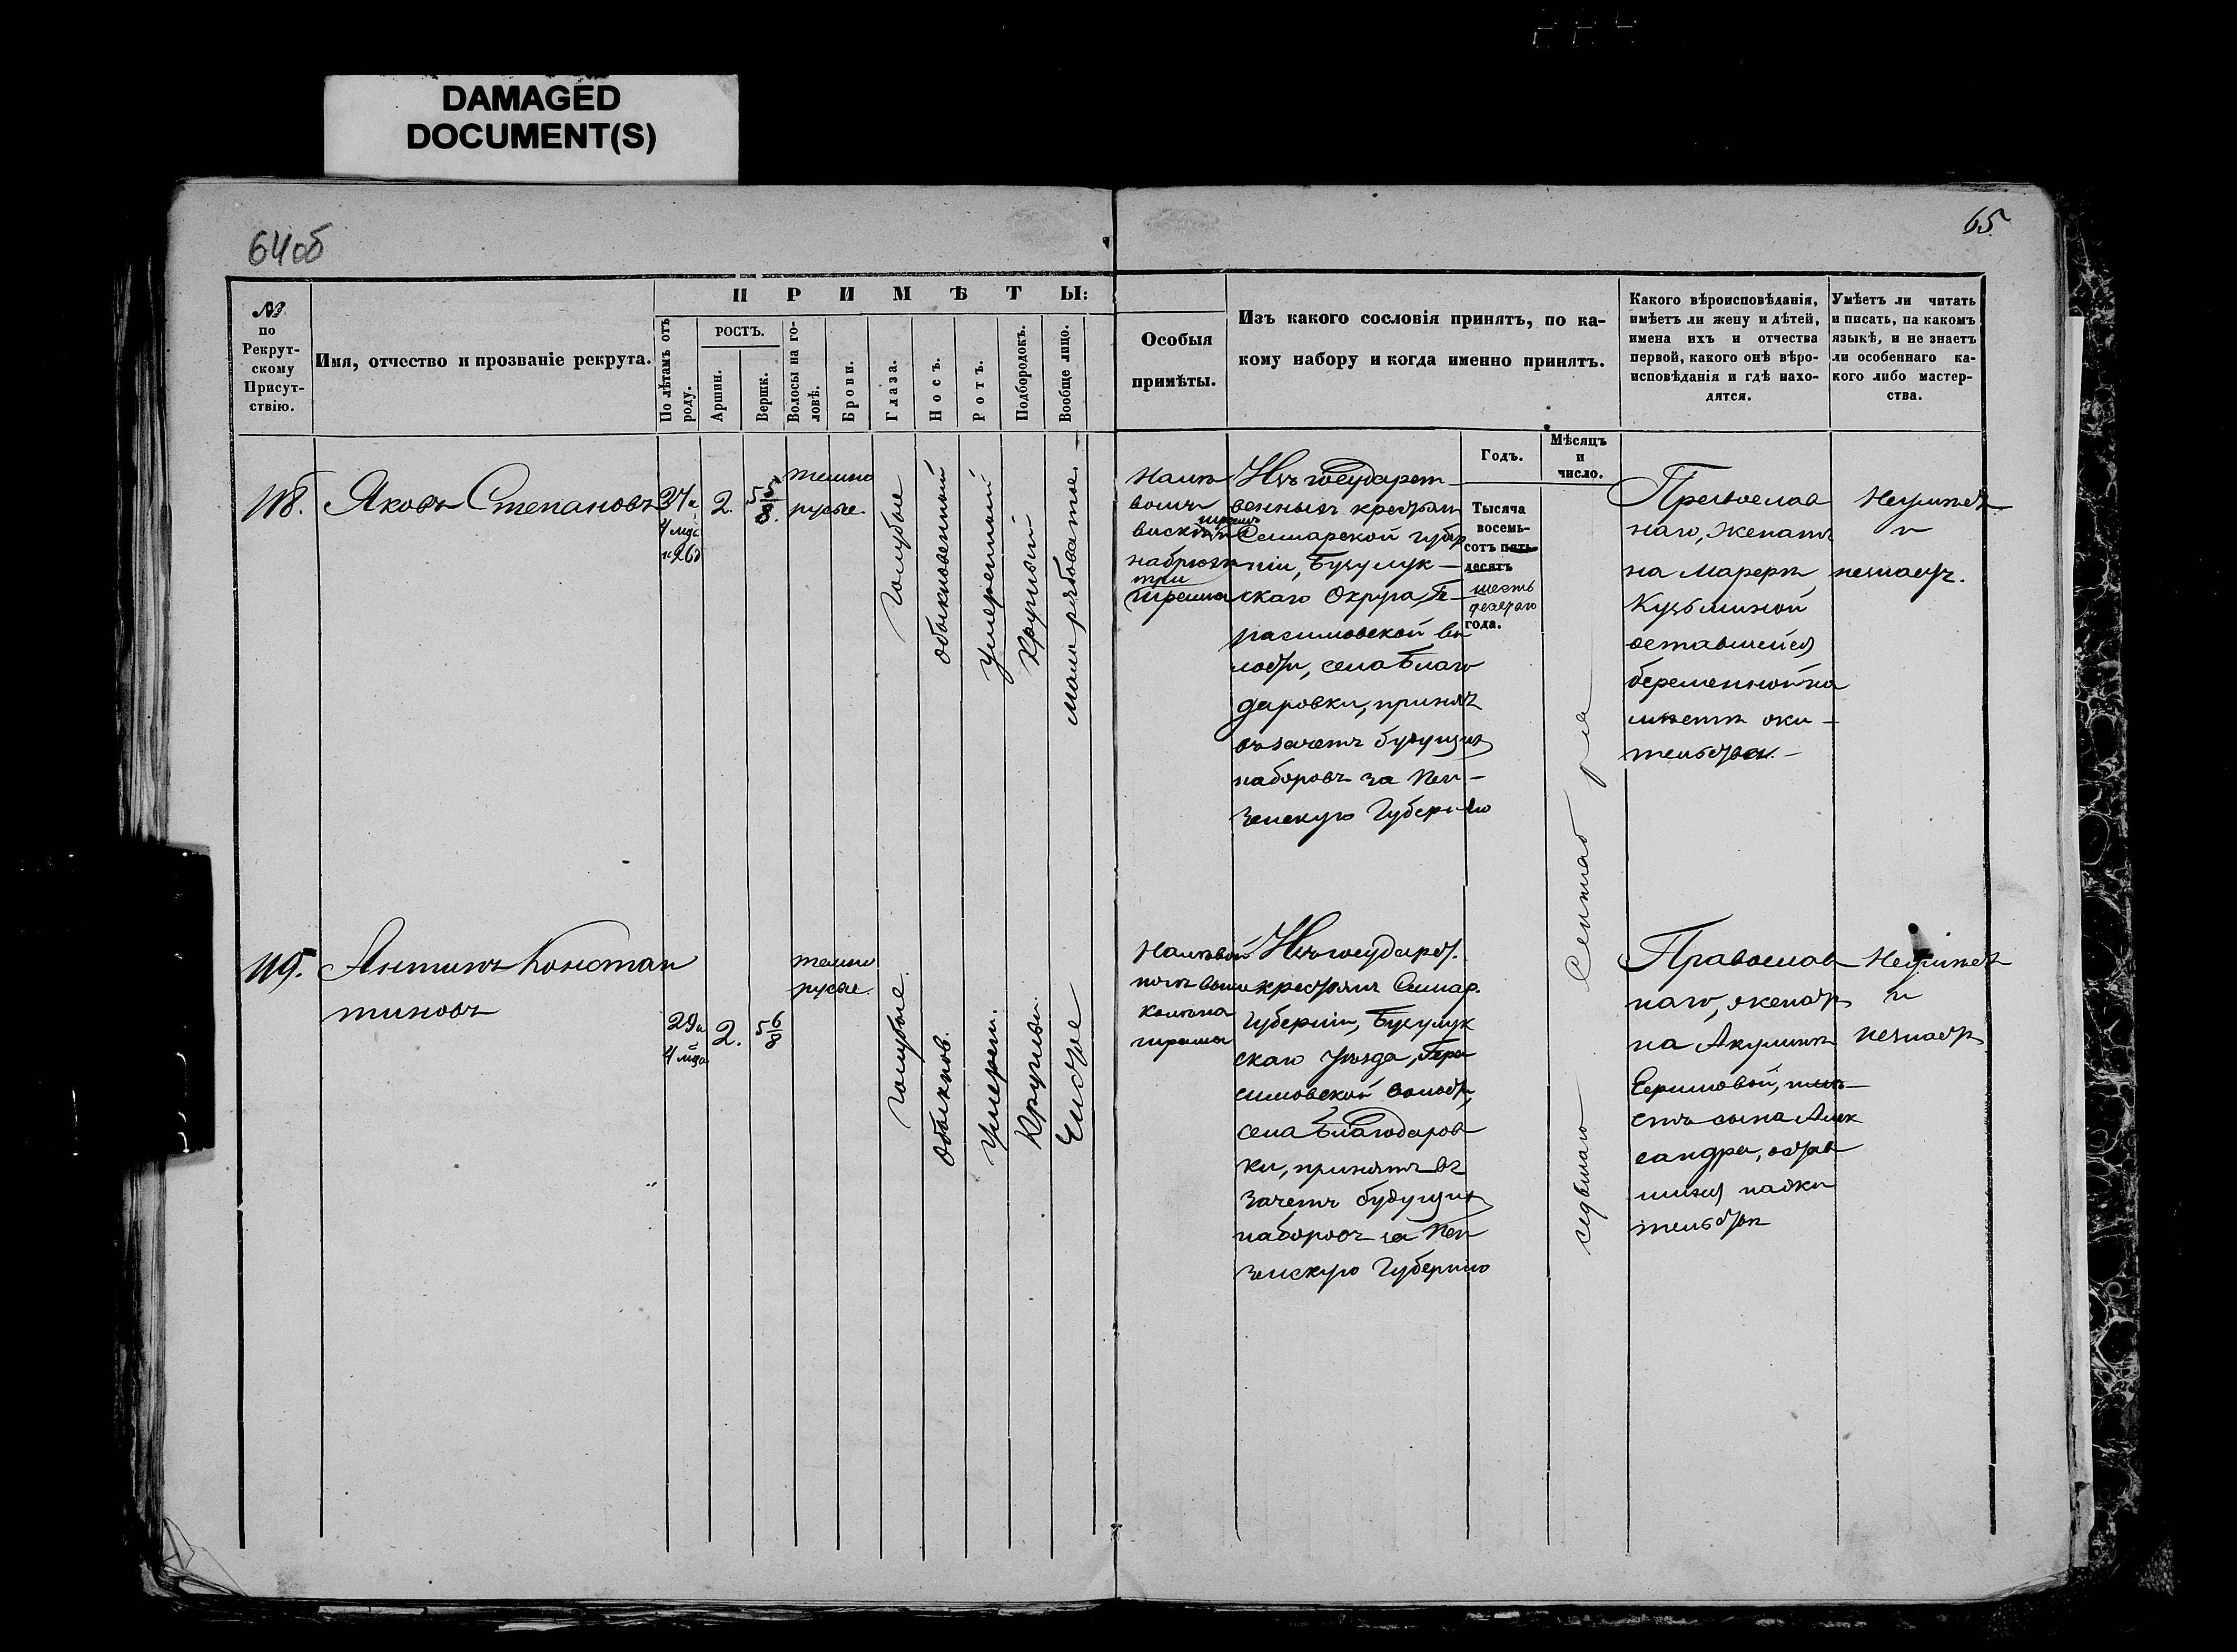 DAMAGED
DOCUMENT(S)
64об
65.
№
по
Рекрут-
скому
Присут-
ствію.
Имя, отчество и прозваніе рекрута.
ПРИМѢТЫ:
По лѣтамъ отъ
роду.
РОСТЪ.
Аршин.
Вершк.
Волосы на го-
ловѣ.
Брови.
Глаза.
Носъ.
Ротъ.
Подбородокъ.
Вообще лицо.
Особыя
примѣты.
Изъ какого сословія принятъ, по ка-
кому набору и когда именно принятъ.
Годъ.
Мѣсяцъ
и
число.
Какого вѣроисповѣданія,
имѣетъ ли жену и дѣтей,
имена ихъ и отчества
первой, какого онѣ вѣро-
исповѣданія и гдѣ нахо-
дятся.
Умѣетъ ли читать
и писать, на какомъ
языкѣ, и не знаетъ
ли особеннаго ка-
кого либо мастер-
ства.
118.
Яковъ Степановъ
2.
5
8
темно
русые.
Голубые
обыкновенный
Умеренный
Круглый
мало рябоватое
На
набрюхѣ
три
шрама
Изъ государст
венныхъ крестьян
Самарской губер
ніи, Бузулук-
скаго Округа, Ге-
расимовской во
лости, села Благо
даровки, принятъ
въ зачетъ будущихъ
наборовъ за Пен-
зенскую Губернію
Тысяча
восемь-
сотъ пять-
десятъ
шесть
десятаго
года.
Сентября
седьмаго
Православ
наго, женатъ
на Марѳѣ
Кузьминой
оставшейся
беременной на
мѣстѣ жи-
тельства.
Неумѣетъ
и
незнаетъ.
119.
Антипъ Констан
тиновъ
29и
4 мца
2.
5 6
8
темно
русые.
Голубые
Обыкнов.
Умерен.
Круглый
Чистое
На лѣвой
шрама
Изъ государст.
крестьянъ Самар.
Губерніи, Бузулук
скаго Уѣзда, Гера
симовской волости,
села Благодаров
ки, принятъ въ
зачетъ будущихъ
наборовъ за Пен
зенскую Губернію
Православ
наго, женатъ
на Акулинѣ
имѣ-
етъ сына Алек
сандра, остав
шихся на жи
тельствѣ
Неумѣетъ
и
незнаетъ